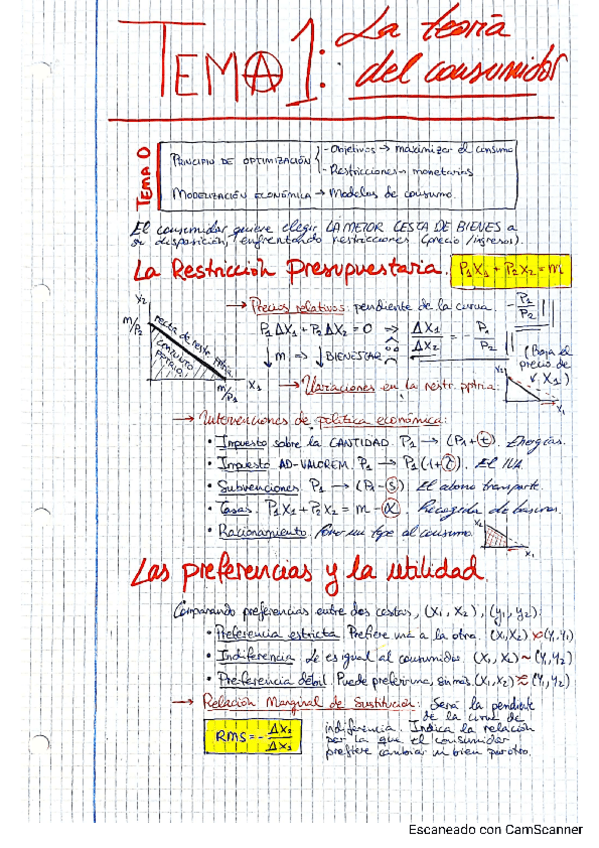 TEMA 1: La teoría
del consumidor
TEMA 0
PRINCIPIO DE OPTIMIZACIÓN
- Objetivos → maximizar el consumo
- Restricciones → monetarias
MODELIZACIÓN ECONÓMICA → Modelos de consumo.
El consumidor quiere elegir LA MEJOR CESTA DE BIENES a
su disposición, enfrentando restricciones (precio/ingresos).
La Restricción Presupuestaria. P₁X₁ + P₂X₂ = m
X₂
m/P₂
recta de restr. pptria.
CONJUNTO
PPTARIO
m/P₁
X₁
→ Precios relativos: pendiente de la curva. -P₁/P₂
P₁ΔX₁ + P₂ΔX₂ = 0 ⇒ ΔX₁/ΔX₂ = -P₁/P₂
↓ m ⇒ ↓ BIENESTAR
→ Variaciones en la restr. pptria.
(Baja el
precio de
X₁)
X₂
X₁
→ Intervenciones de política económica:
• Impuesto sobre la CANTIDAD. P₁ → (P₁ + t). Energías.
• Impuesto AD-VALOREM. P₁ → P₁(1+t). El IVA
• Subvenciones. P₁ → (P₁ - s) El abono transporte.
• Tasas. P₁X₁ + P₂X₂ = m - α. Recogida de basuras.
• Racionamiento. Pone un tope al consumo.
X₂
X₁
Las preferencias y la utilidad.
Comparando preferencias entre dos cestas, (X₁, X₂), (y₁, y₂).
• Preferencia estricta. Prefiere una a la otra. (X₁, X₂) ≻ (Y₁, Y₂)
• Indiferencia. Le es igual al consumidor. (X₁, X₂) ~ (Y₁, Y₂)
• Preferencia débil. Puede preferir una, o no. (X₁, X₂) ≿ (Y₁, Y₂)
→ Relación Marginal de Sustitución: Será la pendiente
de la curva de
indiferencia. Indica la relación
por la que el consumidor
prefiere cambiar un bien por otro.
RMS = -ΔX₂/ΔX₁
Escaneado con CamScanner